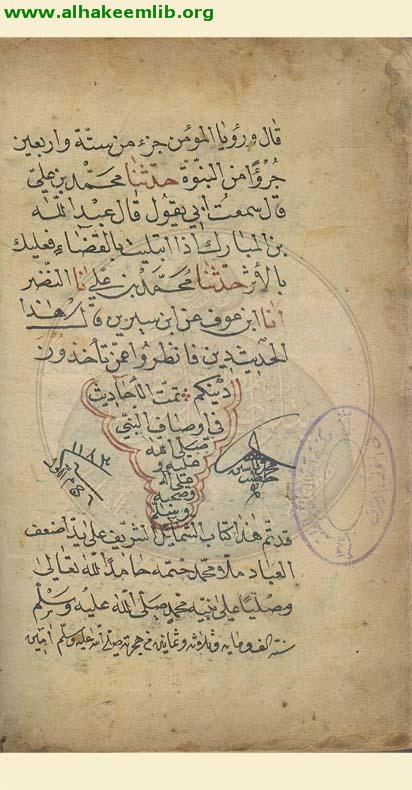 www.alhakeemlib.org
قال ورؤيا المؤمن جزء من ستة واربعين
جزؤا من النبوة حدثنا محمد بن علي
قال سمعت ابي يقول قال عبد الله
بن المبارك اذا ابتليت بالقضاء فعليك
بالأثر حدثنا محمد بن علي نا النضر
انا ابن عوف عن ابن سيرين قال هذا
الحديث دين فانظروا عمن تأخذون
دينكم تمت الأحاديث
في اوصاف النبي
صلى الله
عليه و
على اله
وصحبه
وسلم
١١٨٣
قد تم هذا كتاب الشمايل الشريف على يد اضعف
العباد ملا محمد ختمه حامدا لله تعالى
ومصليا على نبيه محمد صلى الله عليه وسلم
سنة الف ومايه وثلاثة وثمانية في هجرته صلى الله عليه وسلم آمين